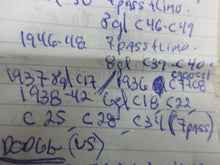 7 pass Limo.
8cyl C46-C49
1946-48 7 pass Limo.
8cyl C39-C40
1937 8cyl C17 1936
1938-42 6cyl C18 C22
C25 C28 C34 (7 pass)
DODGE (US)